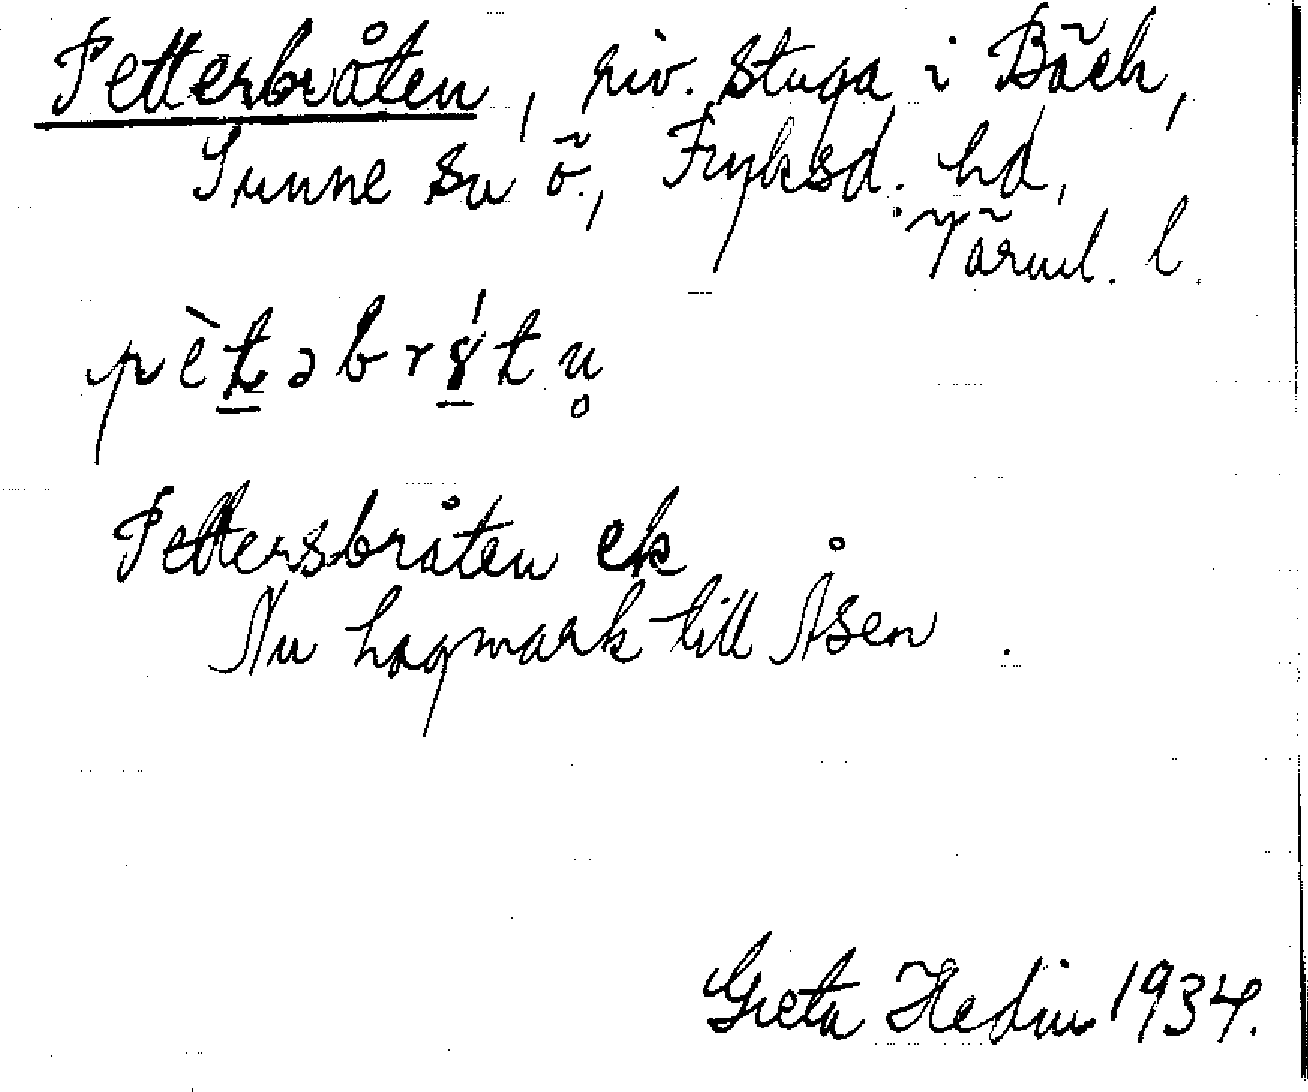 Petterbråten, riv. stuga i Bäck,
Sunne sn ö., Fryksd. hd,
Värml. l.
pètəbrýtn̥
Pettersbråten ek
Nu hagmark till Åsen.
Greta Hedin 1934.